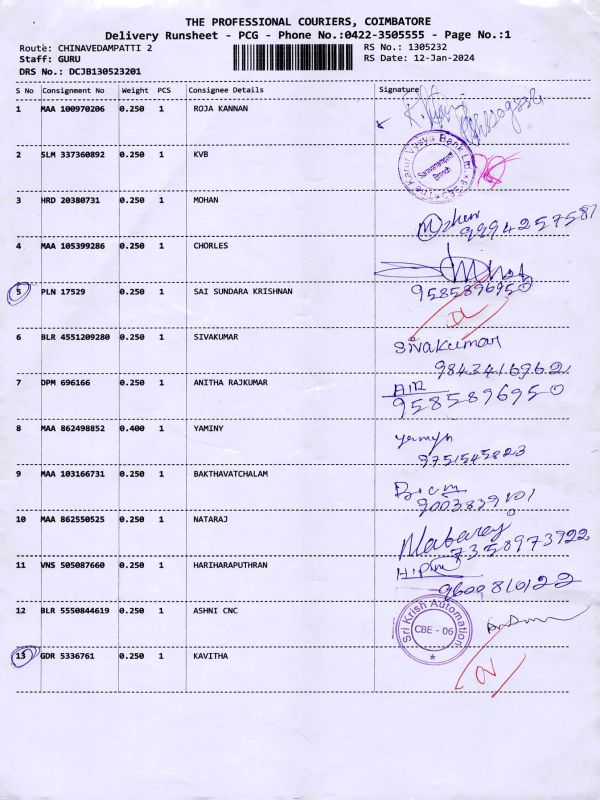 THE PROFESSIONAL COURIERS, COIMBATORE
Delivery Runsheet - PCG - Phone No.:0422-3505555 - Page No.:1
Route: CHINAVEDAMPATTI 2 RS No.: 1305232
Staff: GURU RS Date: 12-Jan-2024
DRS No.: DCJB130523201
S No Consignment No Weight PCS Consignee Details Signature
1 MAA 100970206 0.250 1 ROJA KANNAN
2 SLM 337360892 0.250 1 KVB
The Karur Vysya Bank Ltd.
Saravanampatti
Branch
3 HRD 20380731 0.250 1 MOHAN
Mohan
9994257587
4 MAA 105399286 0.250 1 CHORLES
5 PLN 17529 0.250 1 SAI SUNDARA KRISHNAN
9585896950
6 BLR 4551209280 0.250 1 SIVAKUMAR
Sivakumar
9843416962
7 DPM 696166 0.250 1 ANITHA RAJKUMAR
9585896950
8 MAA 862498852 0.400 1 YAMINY
9751545823
9 MAA 103166731 0.250 1 BAKTHAVATCHALAM
9003839101
10 MAA 862550525 0.250 1 NATARAJ
Nataraj
7358973922
11 VNS 505087660 0.250 1 HARIHARAPUTHRAN
9600810122
12 BLR 5550844619 0.250 1 ASHNI CNC
Sri Krish Automation
CBE - 06
13 GDR 5336761 0.250 1 KAVITHA